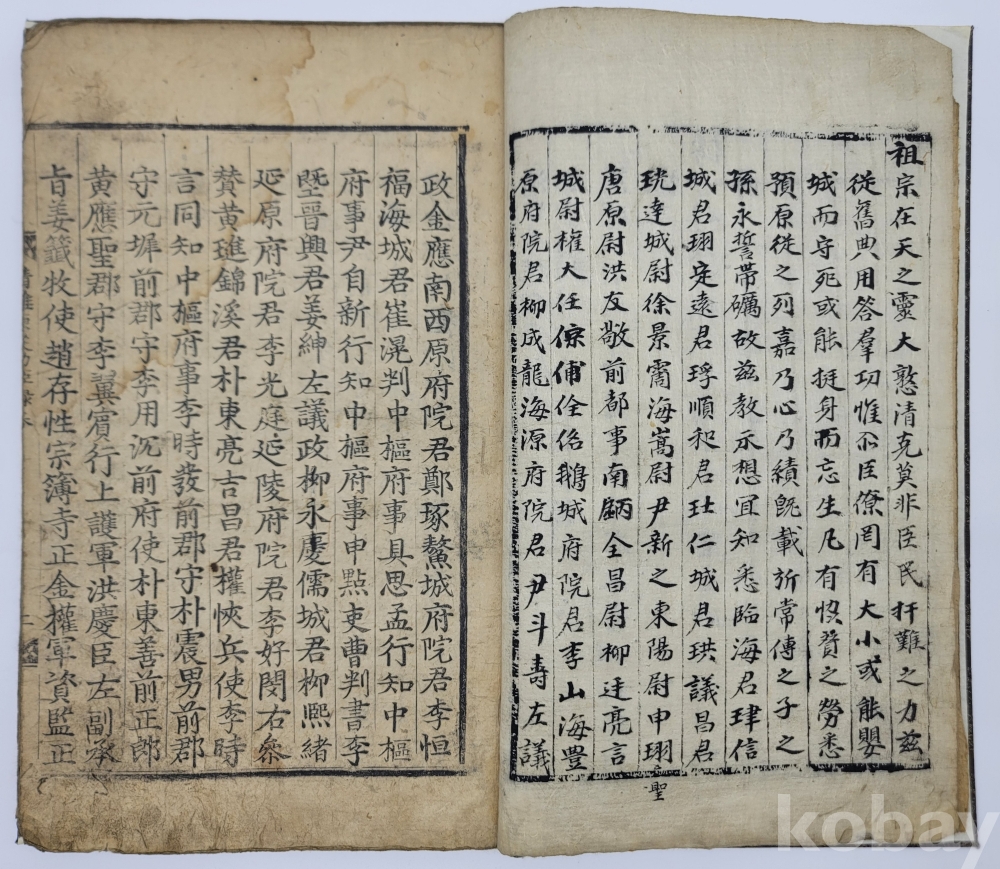 祖宗在天之靈大憝清克莫非臣民扞難之力玆
從舊典用答羣功惟尒臣僚罔有大小或能嬰
城而守死或能挺身而忘生凡有忺賛之勞悉
預原從之列嘉乃心乃績旣載旂常傳之子之
孫永誓帶礪故玆教示想宜知悉臨海君珒信
城君珝定遠君琈順和君𤣰仁城君珙議昌君
珖達城尉徐景霌海嵩尉尹新之東陽尉申翊
唐原尉洪友敬前都事南㬱全昌尉柳廷亮言
城尉權大任倧俌佺佲鵝城府院君李山海豊
原府院君柳成龍海源府院君尹斗壽左議
聖
政金應南西原府院君鄭琢鰲城府院君李恒
福海城君崔滉判中樞府事具思孟行知中樞
府事尹自新行知中樞府事申點吏曹判書李
曁晉興君姜紳左議政柳永慶儒城君柳熙緒
延原府院君李光庭延陵府院君李好閔右叅
賛黃璡錦溪君朴東亮吉昌君權悏兵使李時
言同知中樞府事李時發前郡守朴震男前郡
守元墀前郡守李用沉前府使朴東善前正郎
黃應聖郡守李翼賓行上護軍洪慶臣左副承
旨姜籤牧使趙存性宗簿寺正金權軍資監正
kobay